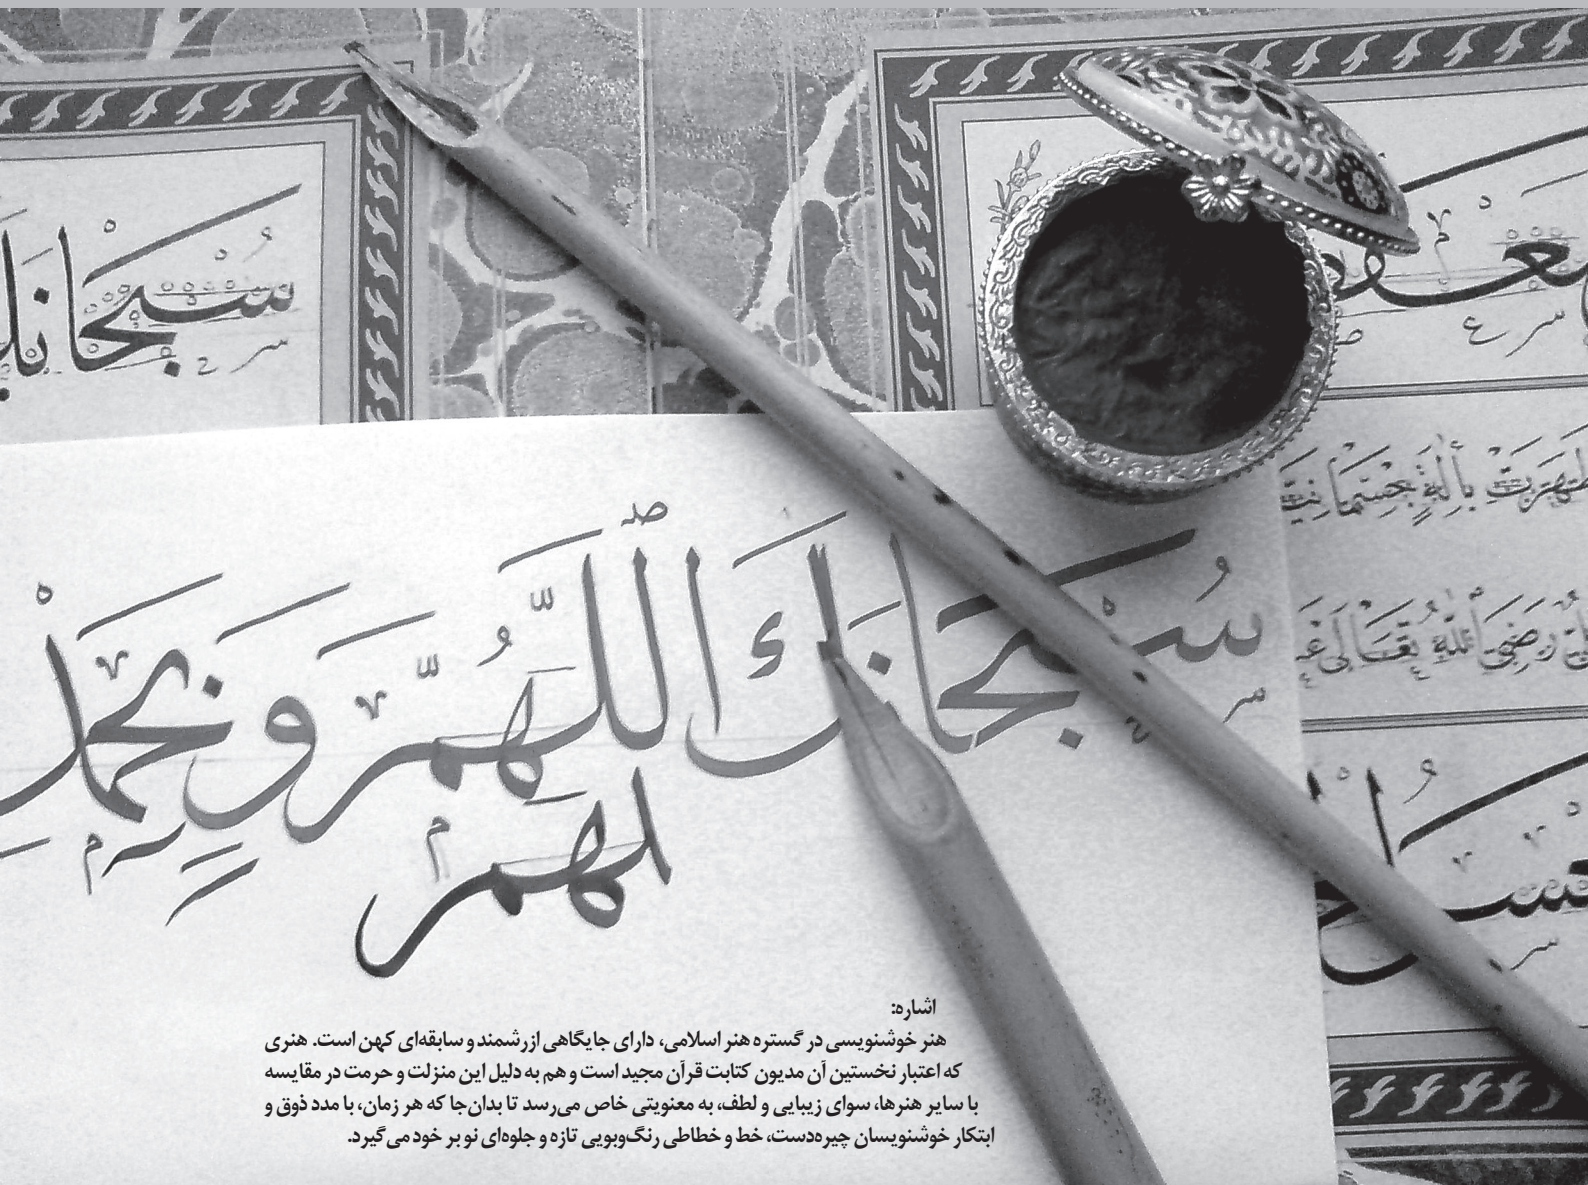 سبحان
سر ح
سر ع ص
طهرت بآلة جسمانية
رضي الله تعالى
سبحانك اللهم وبحمد
سر ح
لهم
سر
اشاره:
هنر خوشنویسی در گستره هنر اسلامی، دارای جایگاهی ازرشمند و سابقه‌ای کهن است. هنری
که اعتبار نخستین آن مدیون کتابت قرآن مجید است و هم به دلیل این منزلت و حرمت در مقایسه
با سایر هنرها، سوای زیبایی و لطف، به معنویتی خاص می‌رسد تا بدان‌جا که هر زمان، با مدد ذوق و
ابتکار خوشنویسان چیره‌دست، خط و خطاطی رنگ‌وبویی تازه و جلوه‌ای نو بر خود می‌گیرد.